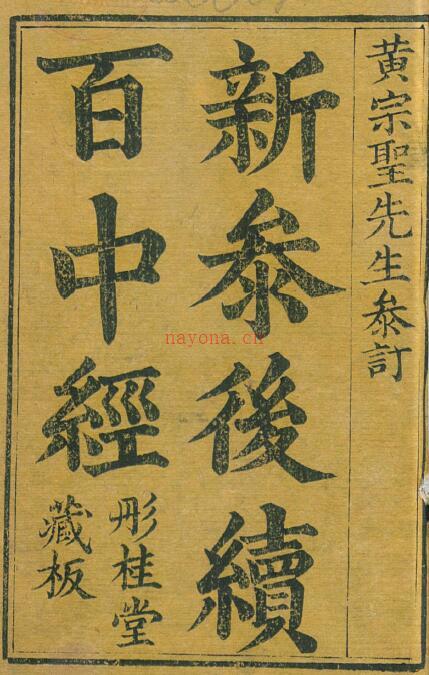 黄宗聖先生叅訂
新叅後續
百中經
彤桂堂
藏板
nayona.cn